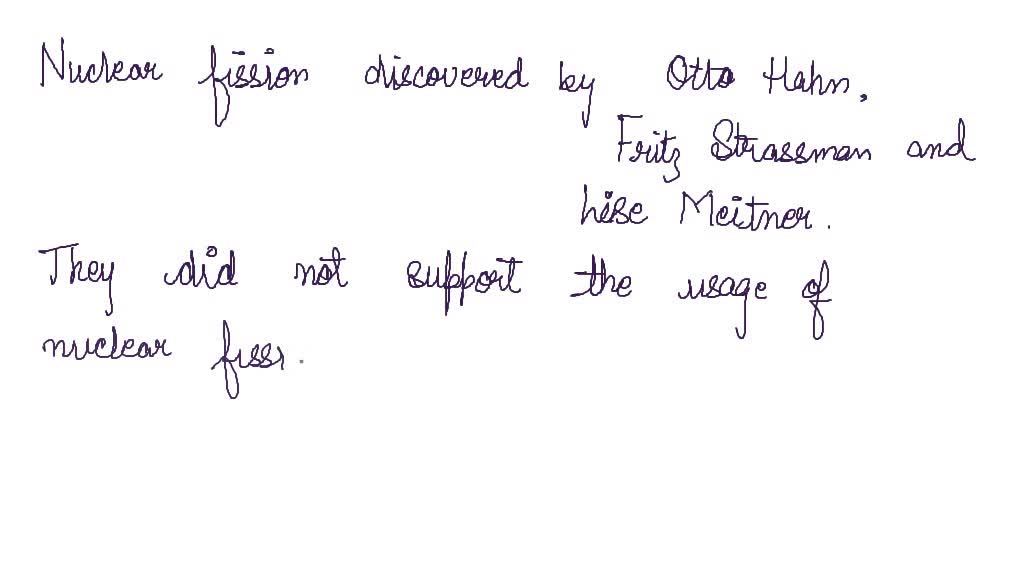 Nuclear fission discovered by Otto Hahn,
Fritz Strassman and
Lise Meitner.
They did not support the usage of
nuclear fissi